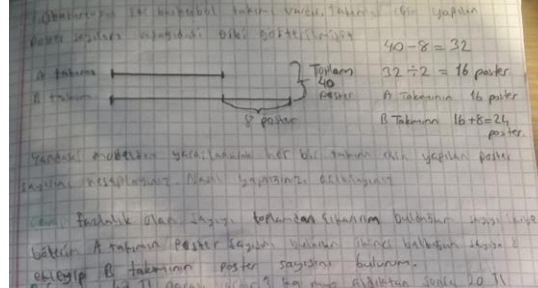 Okulumuzda iki basketbol takımı vardır. Takımlar için yapılan
poster sayıları aşağıdaki gibi gösterilmiştir
40-8=32
A takımı
Toplam
40
poster
32÷2=16 poster
A Takımının 16 poster
B takımı
8 poster
B Takımının 16+8=24
poster.
modelden yararlanarak her bir takım için yapılan poster
sayısını hesaplayınız. Nasıl yaptığınızı açıklayınız
fazlalık olan sayıyı toplamdan çıkarırım bulduğum sayıyı ikiye
bölerim A takımın poster sayısını bulurum ikinci
ekleyip B takımının poster sayısını bulurum.